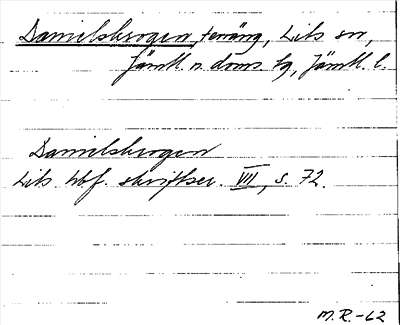 Danielsbrogen, terräng, Lits sn,
Jämtl. n. doms. tg, Jämtl. l.
Danielsbrogen
Lits hbf. skriftser. VII, s. 72.
M.R.-62